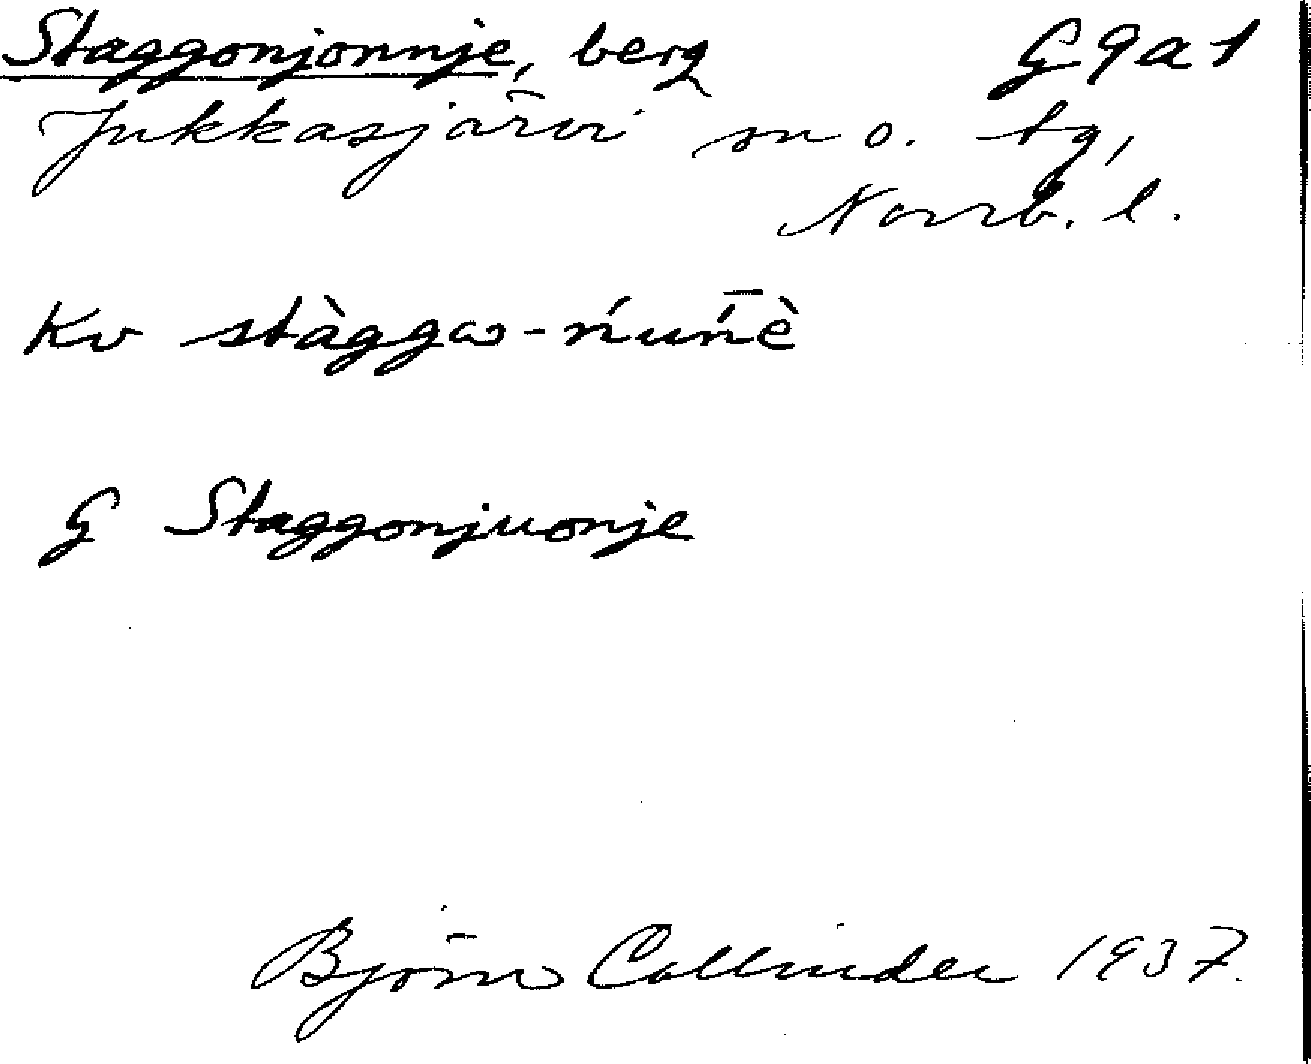 Staggonjonnje, berg G 9 a 1
Jukkasjärvi sn o. tg,
Norrb. l.
Kv stàggω-ńuń̄è
G Staggonjuonje
Björn Collinder 1937.